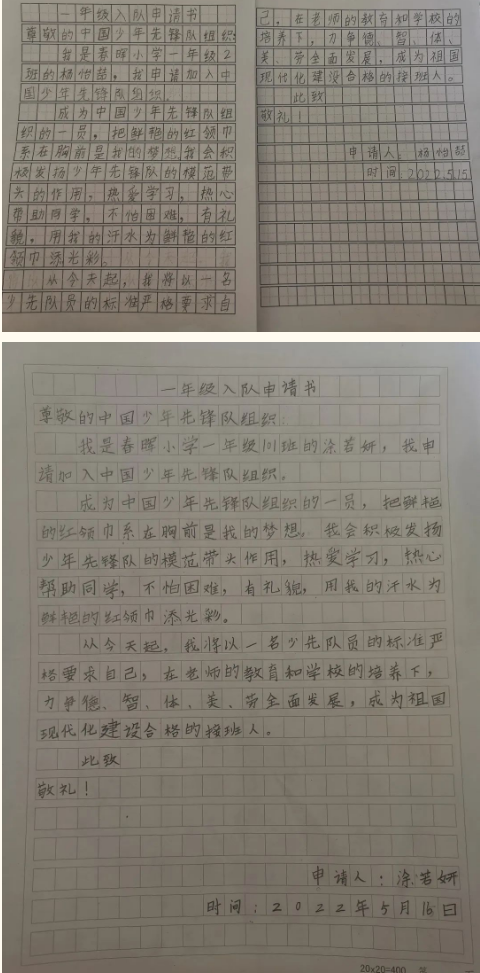 一年级入队申请书
尊敬的中国少年先锋队组织
我是春晖小学一年级2
班的杨怡，我申请加入中
国少年先锋队组织
成为中国少年先锋队组
织的一员，把鲜艳的红领巾
系在胸前是我的梦想。我会积
极发扬少年先锋队的模范带
头的作用，热爱学习，热心
帮助同学，不怕困难，有礼
貌，用我的汗水为鲜艳的红
领巾添光彩。
从今天起，我将以一名
少先队员的标准严格要求自
己，在老师的教育和学校的
培养下，力争德、智、体、
美、劳全面发展，成为祖国
现代化建设合格的接班人。
此致
敬礼！
申请人 杨怡
时间:2022.5.15
一年级入队申请书
尊敬的中国少年先锋队组织:
我是春晖小学一年级101班的涂若妍，我申
请加入中国少年先锋队组织。
成为中国少年先锋队组织的一员，把鲜艳
的红领巾系在胸前是我的梦想。我会积极发扬
少年先锋队的模范带头作用，热爱学习，热心
帮助同学，不怕困难，有礼貌，用我的汗水为
鲜艳的红领巾添光彩。
从今天起，我将以一名少先队员的标准严
格要求自己，在老师的教育和学校的培养下，
力争德、智、体、美、劳全面发展，成为祖国
现代化建设合格的接班人。
此致
敬礼！
申请人：涂若妍
时间：2022年5月16日
20x20=400